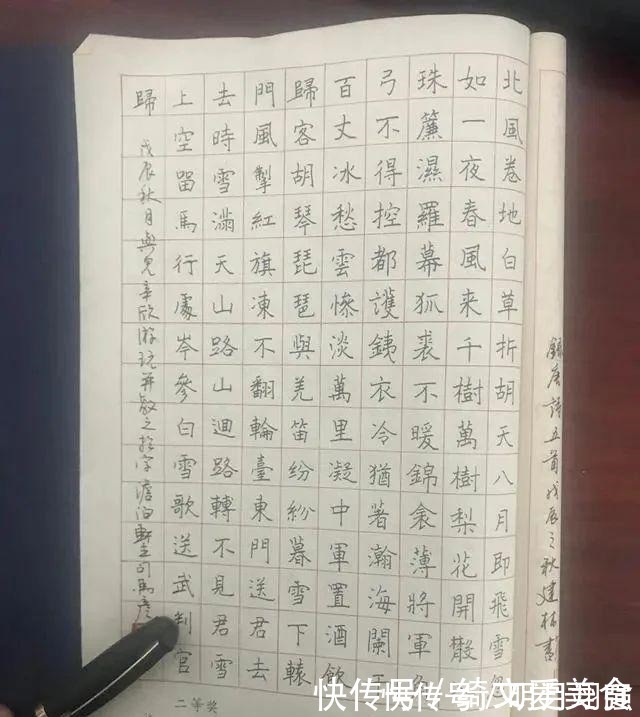 錄唐詩五首戊辰之秋建書
北風卷地白草折胡天八月即飛雪忽
如一夜春風来千樹萬樹梨花開散
珠簾濕羅幕狐裘不暖錦衾薄將軍角
弓不得控都護銕衣冷猶著瀚海闌干
百丈冰愁雲慘淡萬里凝中軍置酒飲
歸客胡琴琵琶與羌笛紛紛暮雪下轅
門風掣紅旗凍不翻輪臺東門送君去
去時雪滿天山路山迴路轉不見君雪
上空留馬行處岑參白雪歌送武判官
歸
戊辰秋月與兒辛欣游玩并敘之於字澹泊軒主司馬彦
二等奖